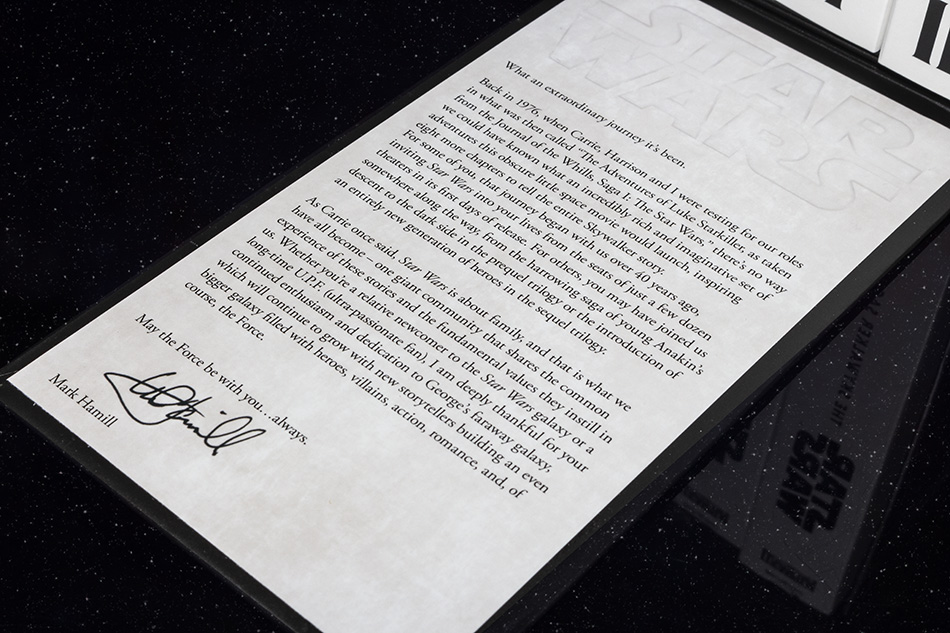 STAR
WARS
What an extraordinary journey it's been.
Back in 1976, when Carrie, Harrison and I were testing for our roles
in what was then called "The Adventures of Luke Starkiller, as taken
from the Journal of the Whills, Saga I: The Star Wars," there's no way
we could have known what an incredibly rich and imaginative set of
adventures this obscure little space movie would launch, inspiring
eight more chapters to tell the entire Skywalker story.
For some of you, that journey began with us over 40 years ago,
inviting Star Wars into your lives from the seats of just a few dozen
theaters in its first days of release. For others, you may have joined us
somewhere along the way, from the harrowing saga of young Anakin's
descent to the dark side in the prequel trilogy or the introduction of
an entirely new generation of heroes in the sequel trilogy.
As Carrie once said, Star Wars is about family, and that is what we
have all become – one grant community that shares the common
experience of these stories and the fundamental values they instill in
us. Whether you're a relative newcomer to the Star Wars galaxy or a
long-time U.P.F. (ultra passionate fan), I am deeply thankful for your
continued enthusiasm and dedication to George's faraway galaxy,
which will continue to grow with new storytellers building an even
bigger galaxy filled with heroes, villains, action, romance, and, of
course, the Force.
May the Force be with you…always.
Mark Hamill
STAR
WARS